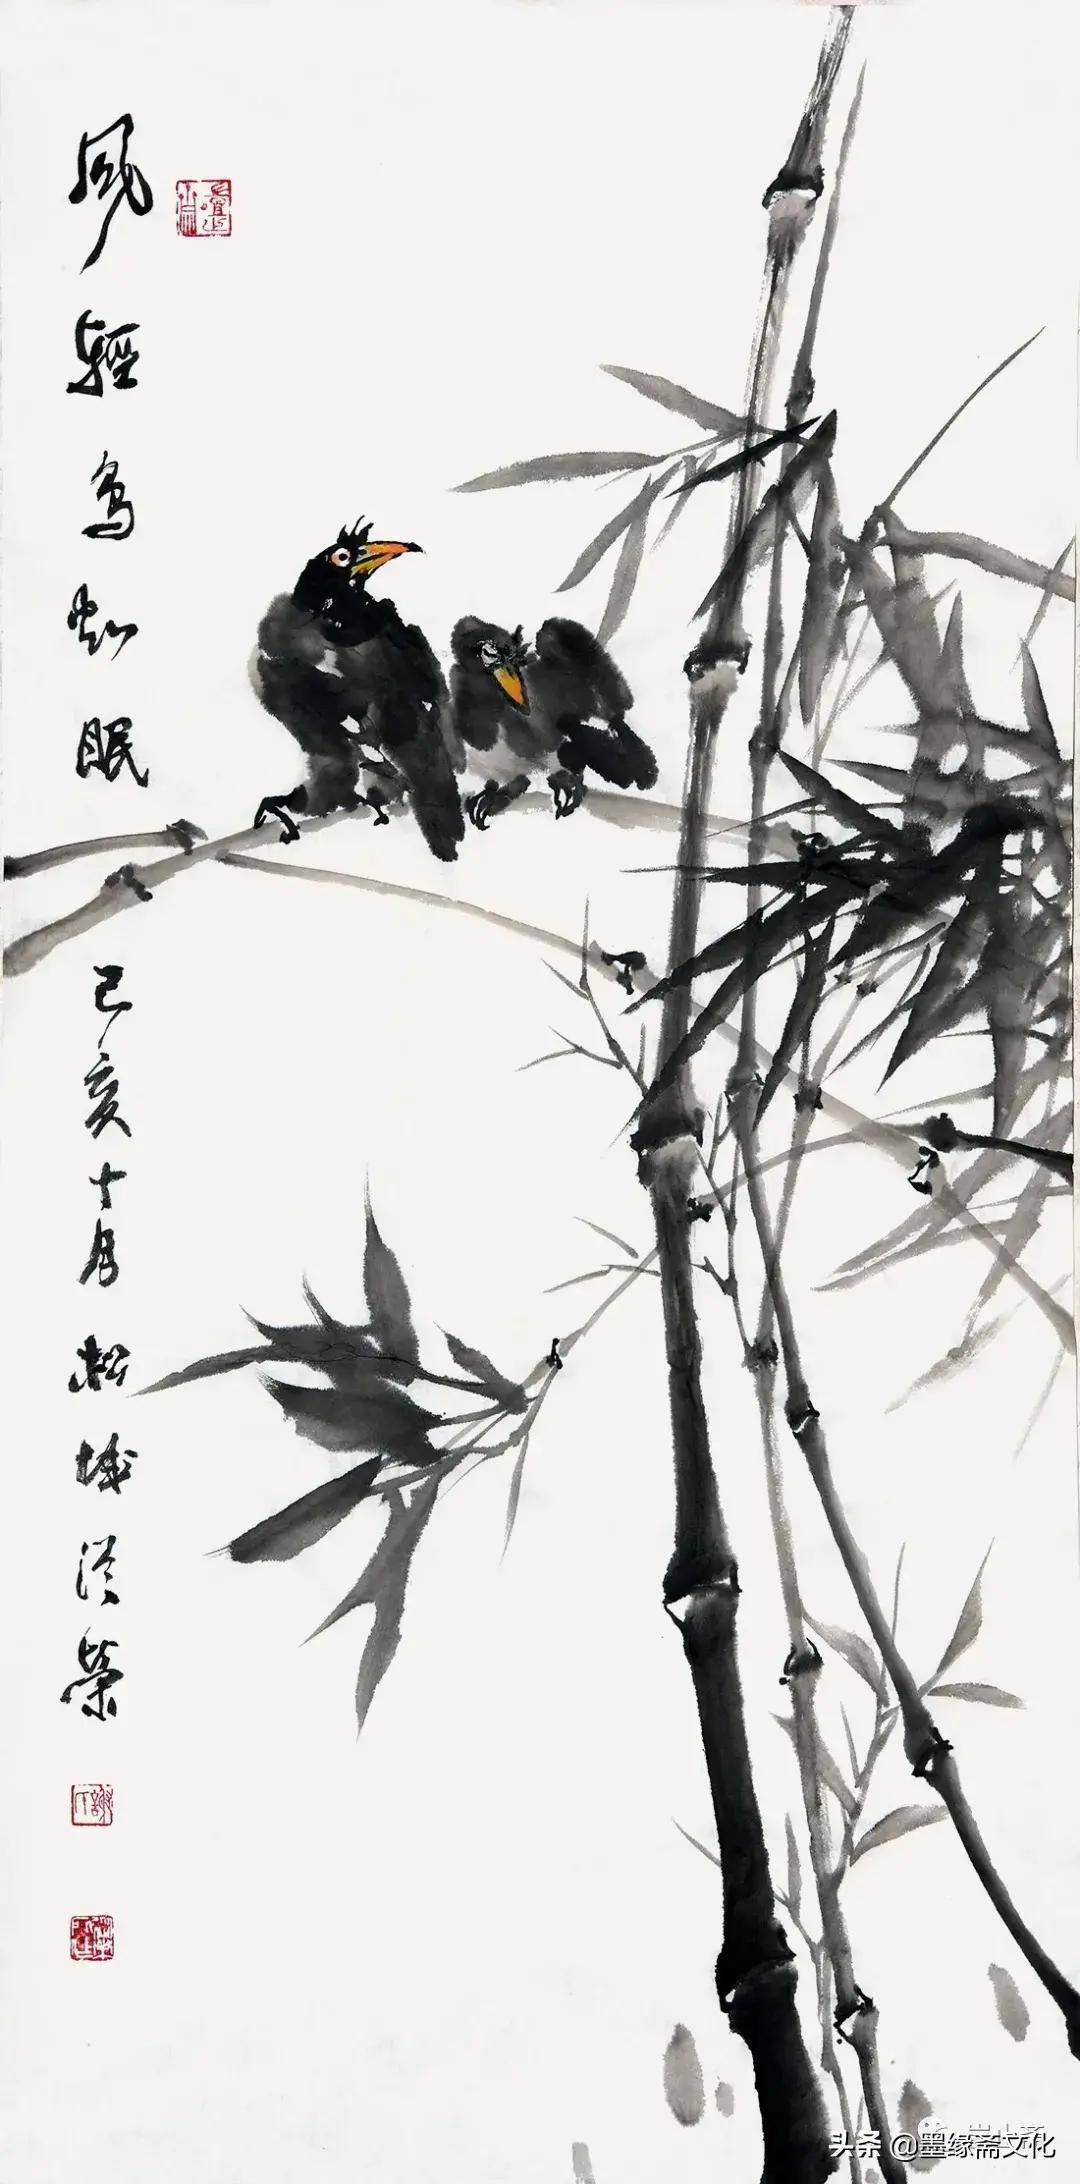 風輕鳥知眠
己亥十月松城榮
头条 @墨缘斋文化